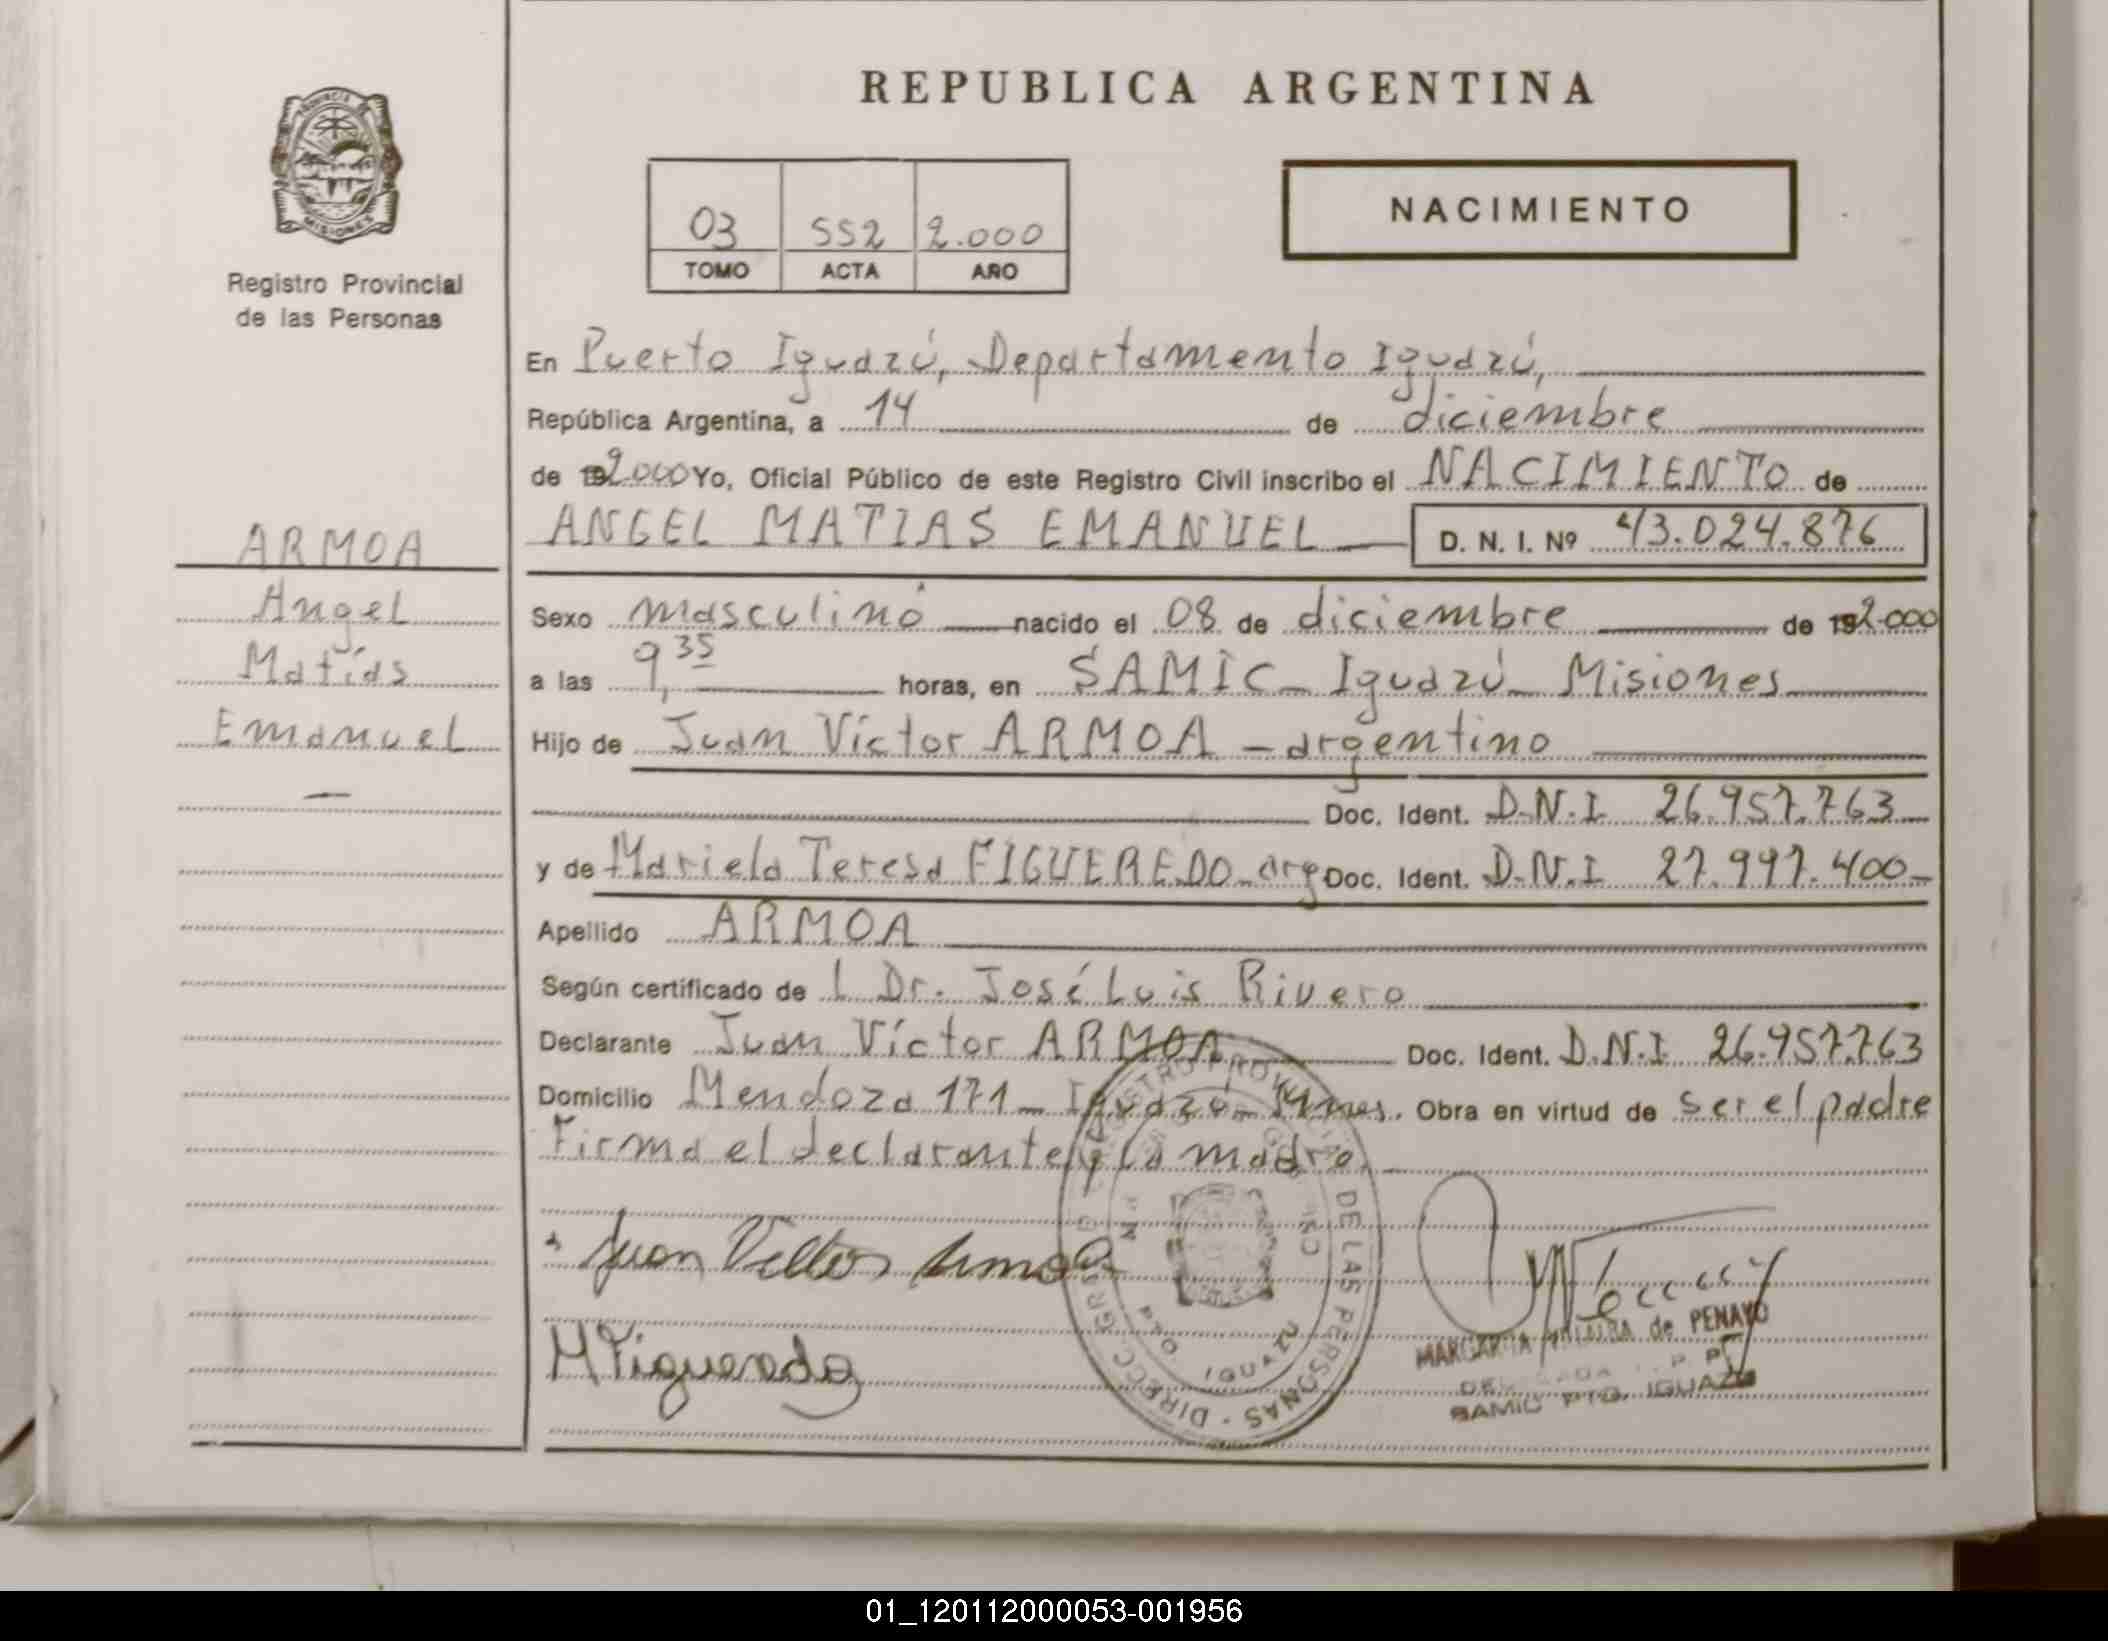 REPUBLICA ARGENTINA
PROVINCIA DE
MISIONES
Registro Provincial
de las Personas
03 552 2.000
TOMO ACTA AÑO
NACIMIENTO
En Puerto Iguazú, Departamento Iguazú,
República Argentina, a 14 de diciembre
de 192.000 Yo, Oficial Público de este Registro Civil inscribo el NACIMIENTO de
ANGEL MATIAS EMANUEL D. N. I. Nº 43.024.876
ARMOA
Angel
Matías
Emanuel
Sexo masculino nacido el 08 de diciembre de 192.000
a las 9,35 horas, en SAMIC - Iguazú - Misiones
Hijo de Juan Víctor ARMOA - argentino
Doc. Ident. D.N.I 26.957.763
y de Mariela Teresa FIGUEREDO - arg Doc. Ident. D.N.I 27.997.400-
Apellido ARMOA
Según certificado de l Dr. José Luis Rivero
Declarante Juan Víctor ARMOA Doc. Ident. D.N.I. 26.957.763
Domicilio Mendoza 171 - Iguazú - Mnes. Obra en virtud de ser el padre
Firma el declarante y la madre.
Juan Victor Armoa
MARGARITA de PENAYO
SAMIC PTO. IGUAZU
REGISTRO PROVINCIAL DE LAS PERSONAS - DIRECC
01_120112000053-001956